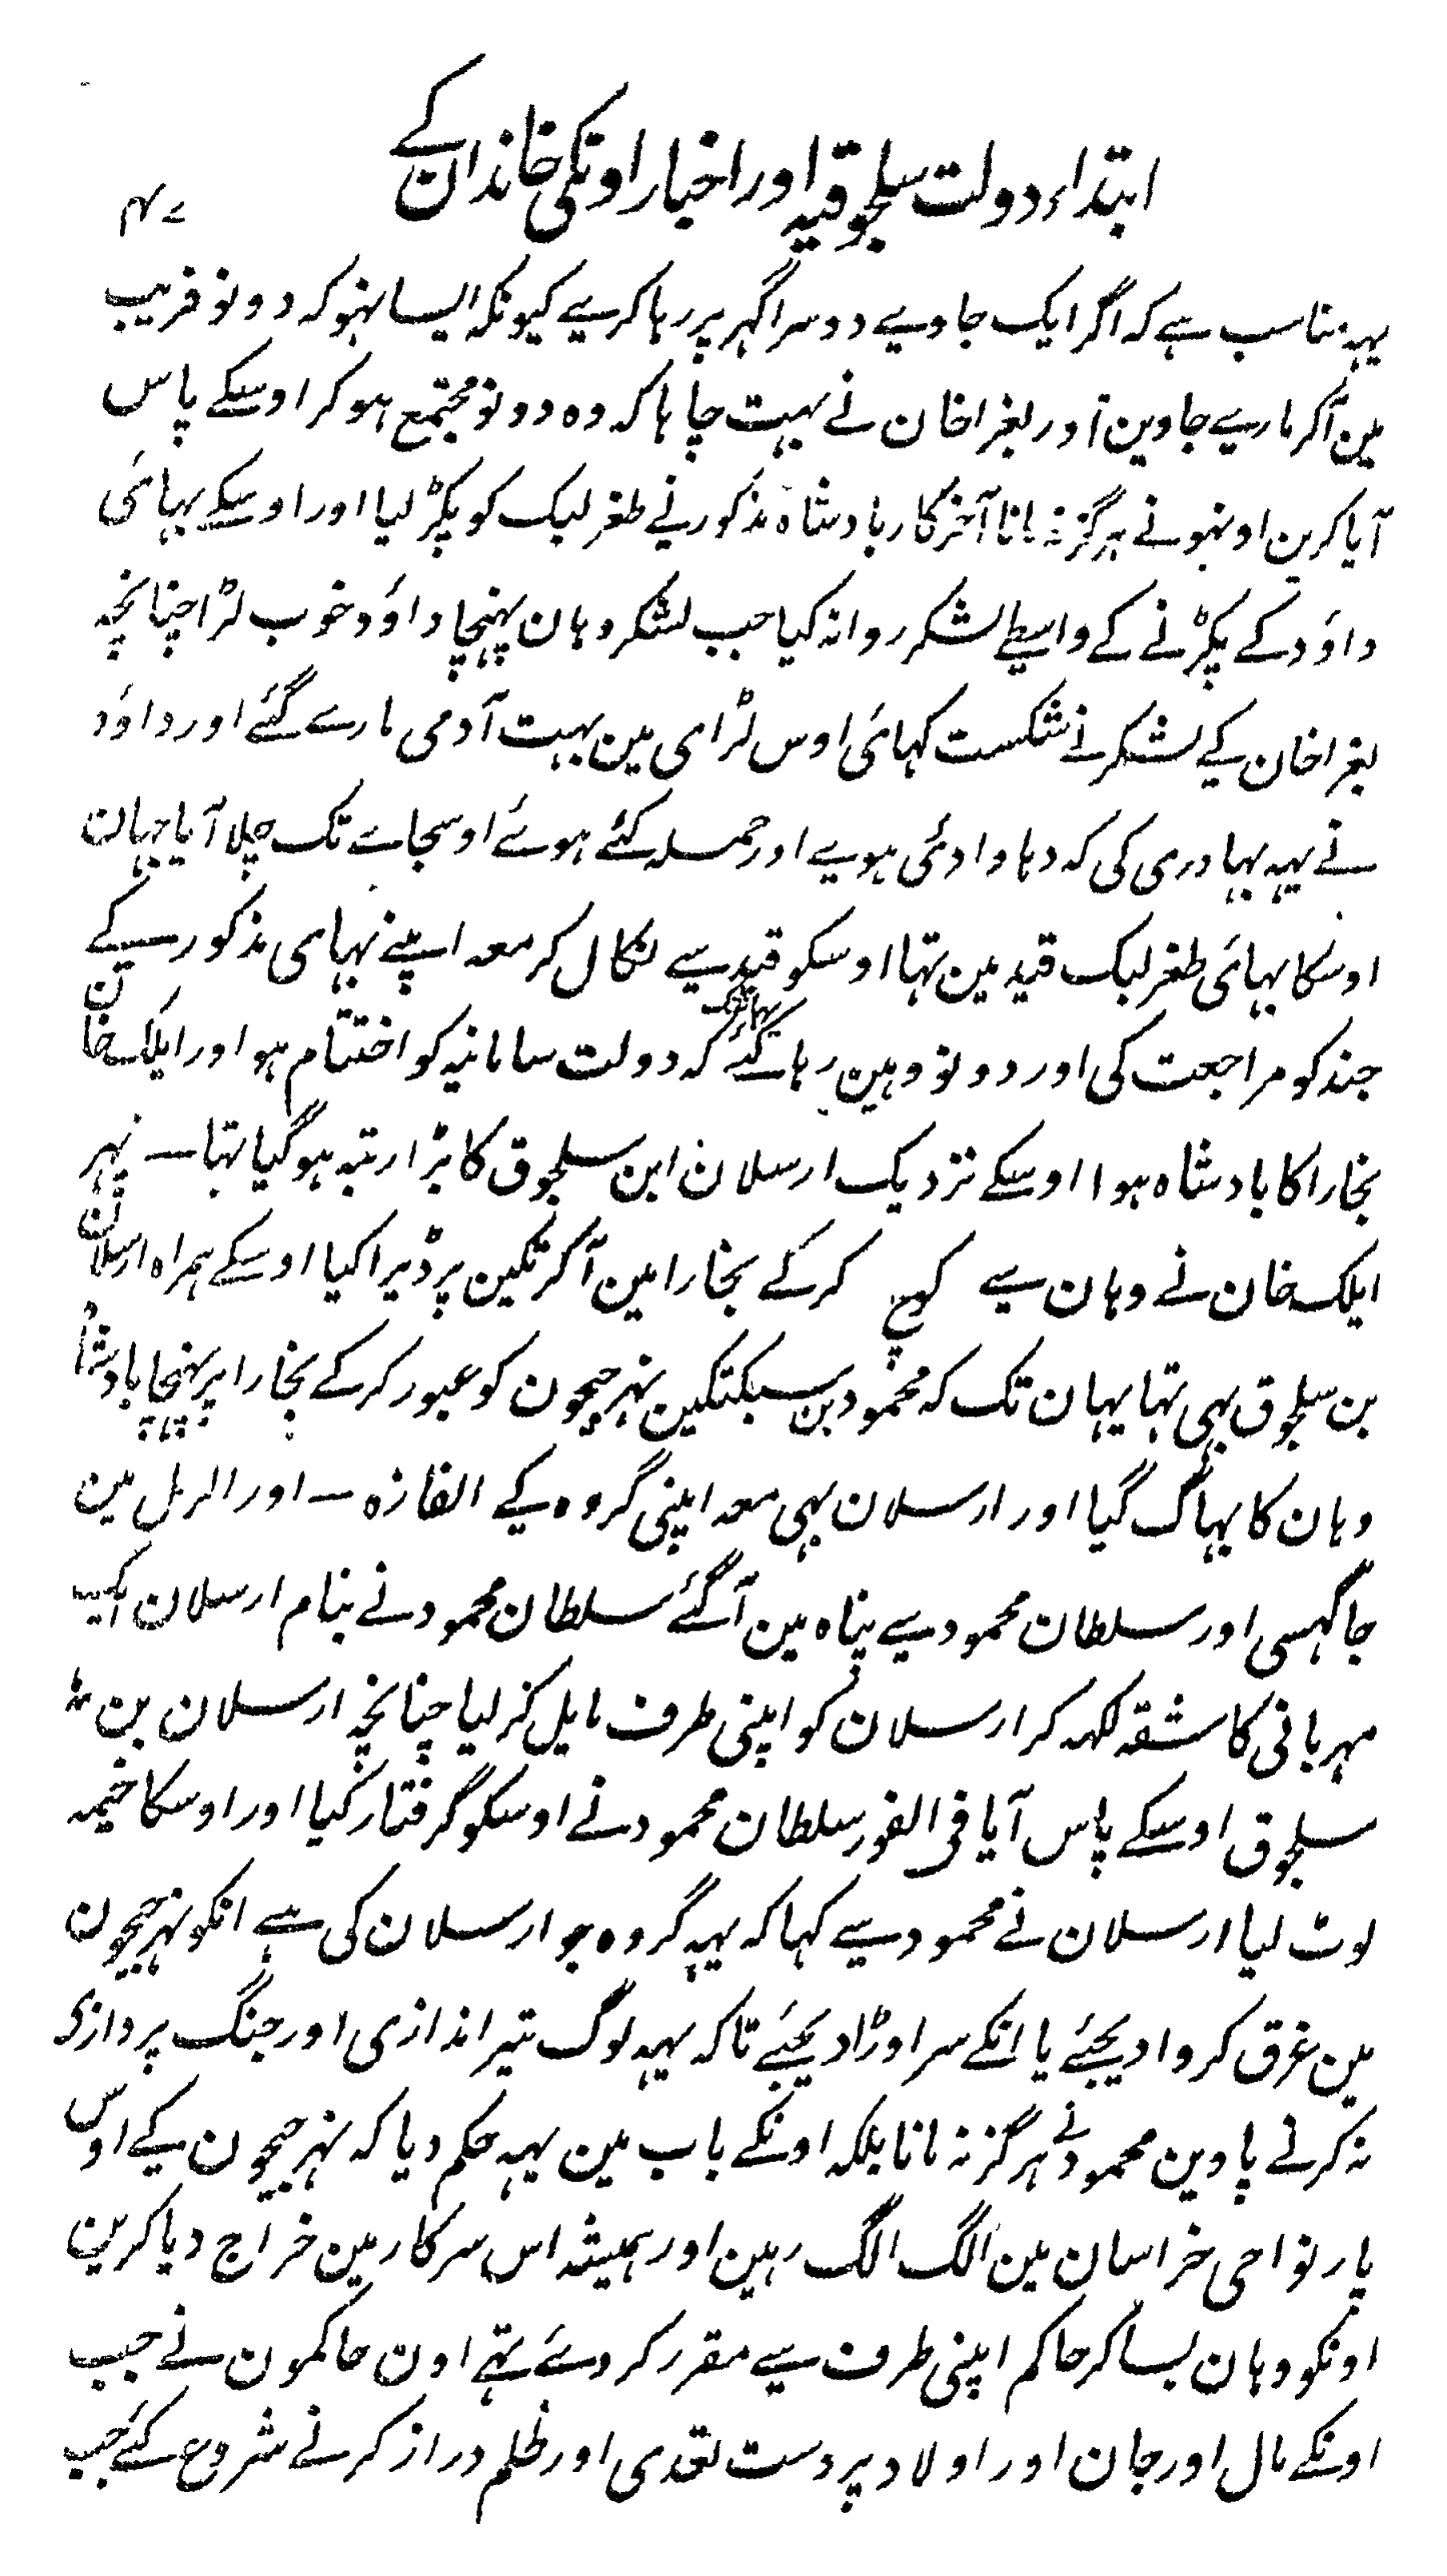 ابتداء دولت سلجوقیہ اور اخبار اونکی خاندان کے
۴۷
یہہ مناسب ہے کہ اگر ایک جاویے دوسرا گہر پر رہا کرے کیونکہ ایسا نہو کہ دونو فریب
مین آکر مارے جاوین اور بغرا خان نے بہت چاہا کہ وہ دونو مجتمع ہو کر اوسکے پاس
آیا کرین اونہو نے ہرگز نہ مانا آخر کار بادشاہ مذکور نے طغرلبک کو پکڑ لیا اور اوسکے بہائی
داؤد کے پکڑنے کے واسطے لشکر روانہ کیا جب لشکر وہان پہنچا داؤد خوب لڑا چنانچہ
بغرا خان کے لشکر نے شکست کہائی اوس لڑای مین بہت آدمی مارے گئے اور داؤد
نے یہہ بہادری کی کہ دہاوا دئی ہویے اور حملہ کئے ہوئے اوسجاے تک چلا آیا جہان
اوسکا بہائی طغرلبک قید مین تہا اوسکو قید سے نکال کر معہ اپنے بہای مذکور سے کے
جند کو مراجعت کی اور دونو وہین رہا کئے یہانتک کہ دولت سامانیہ کو اختتام ہو اور ایلک خان
بخارا کا بادشاہ ہوا اوسکے نزدیک ارسلان ابن سلجوق کا بڑا رتبہ ہو گیا تہا ـ پہر
ایلک خان نے وہان سے کوچ کر کے بخارا مین آکر تکین پر ڈیرا کیا اوسکے ہمراہ ارسلان
بن سلجوق بہی تہا یہان تک کہ محمود بن سبکتکین نہر جیحون کو عبور کر کے بخارا پر پہنچا بادشاہ
وہان کا بہاگ گیا اور ارسلان بہی معہ اپنی گروہ کے الفازہ ـ اور الرمل مین
جا گہسی اور سلطان محمود سے پناہ مین آ گئے سلطان محمود نے بنام ارسلان ایک
مہربانی کا شقہ لکہہ کر ارسلان کو اپنی طرف مایل کر لیا چنانچہ ارسلان بن
سلجوق اوسکے پاس آیا فی الفور سلطان محمود نے اوسکو گرفتار کیا اور اوسکا خیمہ
لوٹ لیا ارسلان نے محمود سے کہا کہ یہہ گروہ جو ارسلان کی ہے انکو نہر جیحون
مین غرق کروا دیجئے یا انکے سر اوڑا دیجئے تا کہ یہہ لوگ تیر اندازی اور جنگ پردازی
نہ کرنے پاوین محمود نے ہرگز نہ مانا بلکہ اونکے باب مین یہہ حکم دیا کہ نہر جیحون کے اوس
پار نواحی خراسان مین الگ الگ رہین اور ہمیشہ اس سرکار مین خراج دیا کرین
اونکو وہان بسا کر حاکم اپنی طرف سے مقرر کر دئے تہے اون حاکمون نے جب
اونکے مال اور جان اور اولاد پر دست تعدی اور ظلم دراز کرنے شروع کئے جب